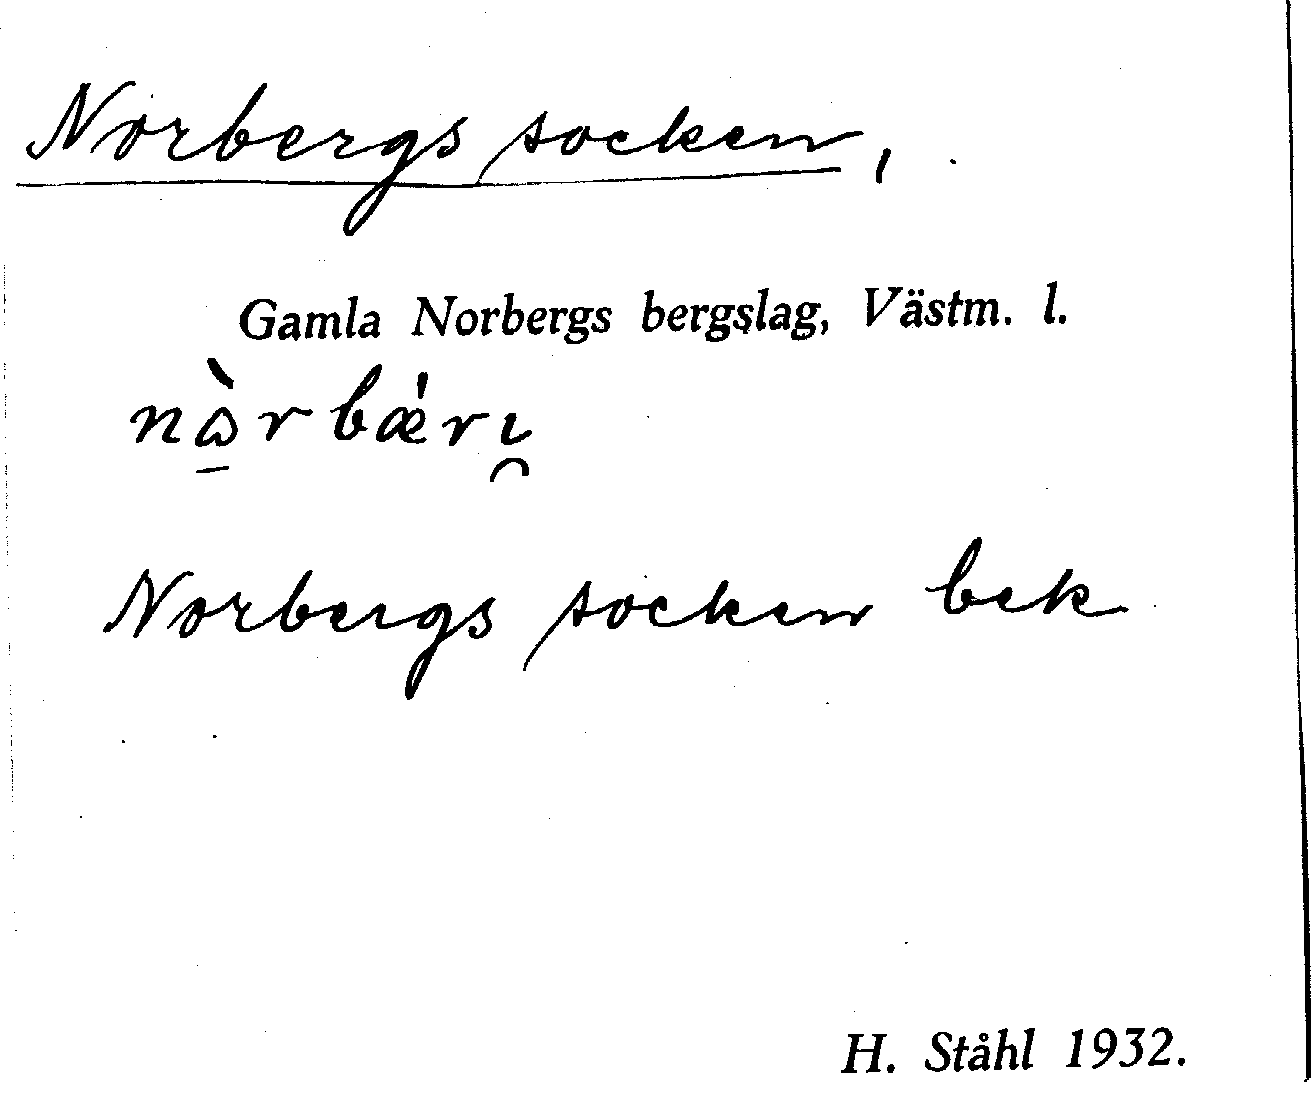 Norbergs socken,
Gamla Norbergs bergslag, Västm. l.
nὼ̲rbǽrι̯
Norbergs socken bek
H. Ståhl 1932.